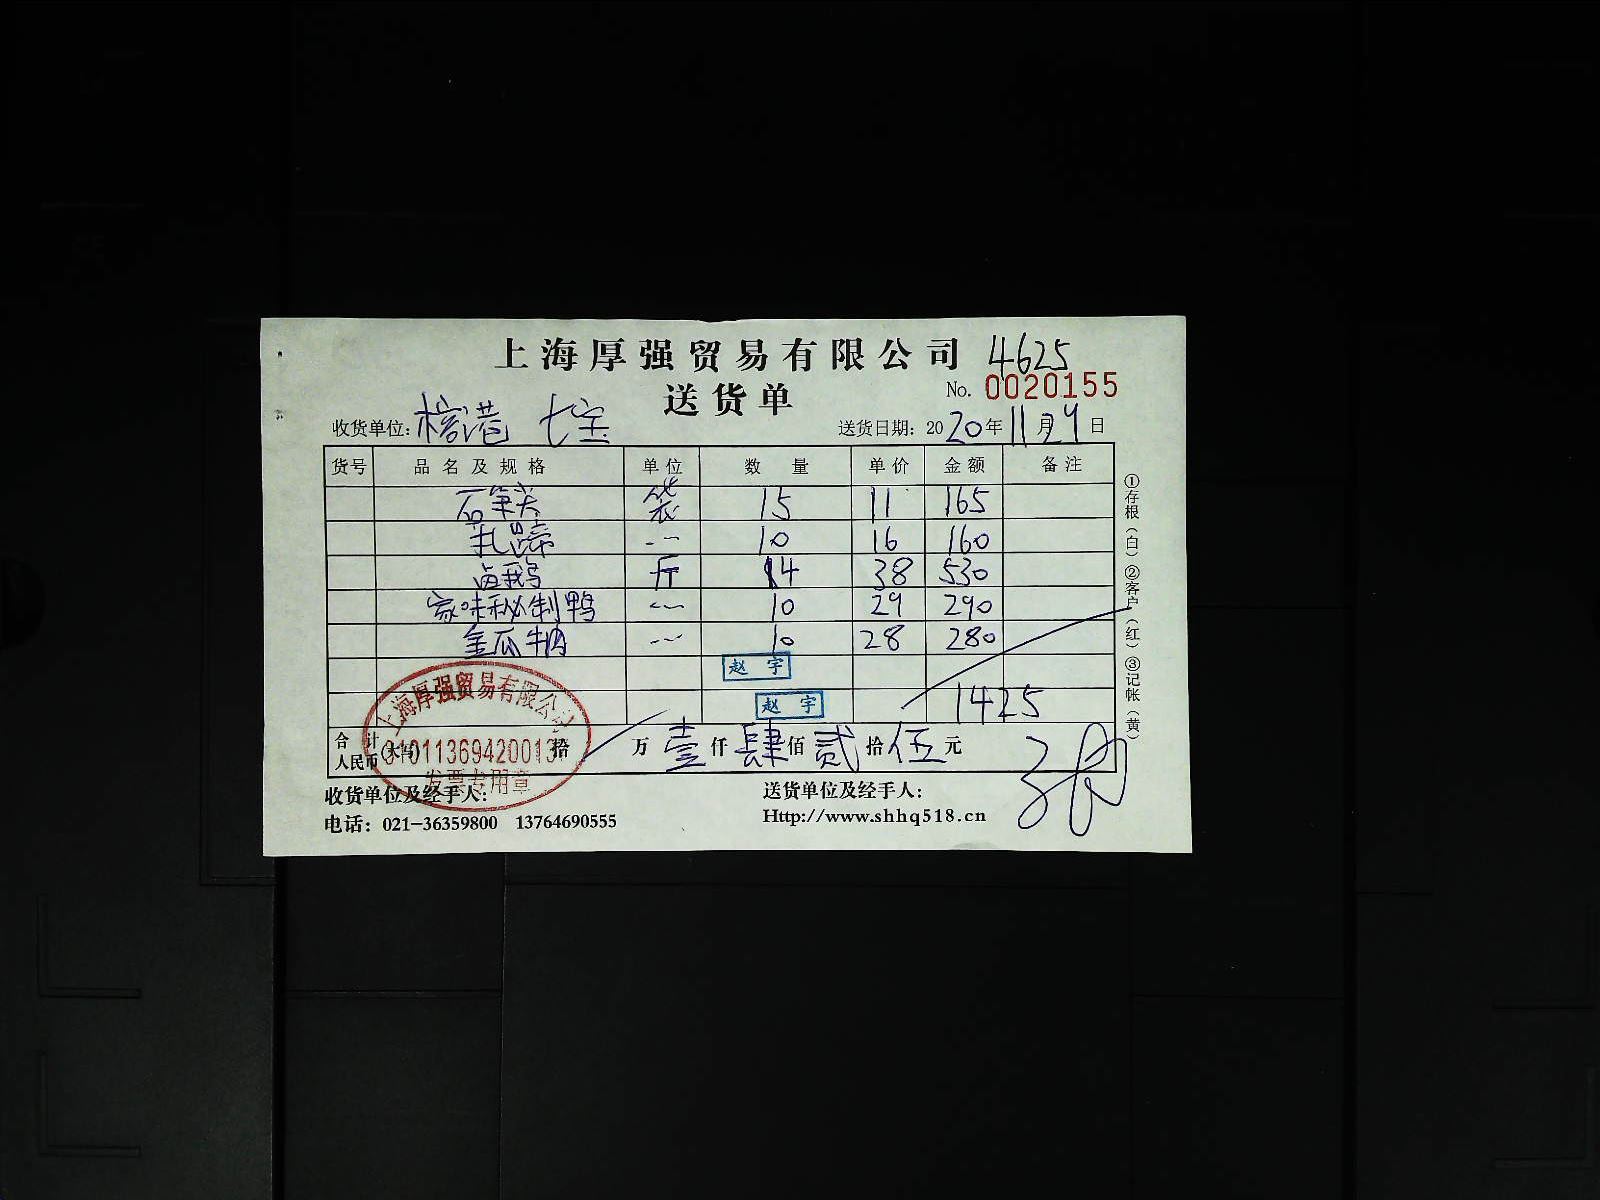 上海厚强贸易有限公司 4625
送货单 No. 0020155
收货单位: 榕港 七宝 送货日期: 2020年11月29日
货号 品名及规格 单位 数量 单价 金额 备注
石笔尖 袋 15 11 165
扎蹄 -- 10 16 160
卤鹅 斤 14 38 530
家味秘制鸭 -- 10 29 290
金瓜牛肉 -- 10 28 280
赵宇
赵宇 1425
合计人民币(大写) 拾 万 壹仟肆佰贰拾伍元
上海厚强贸易有限公司
310113694200137
发票专用章
收货单位及经手人: 送货单位及经手人:
电话: 021-36359800 13764690555 Http://www.shhq518.cn
①存根(白)②客户(红)③记帐(黄)